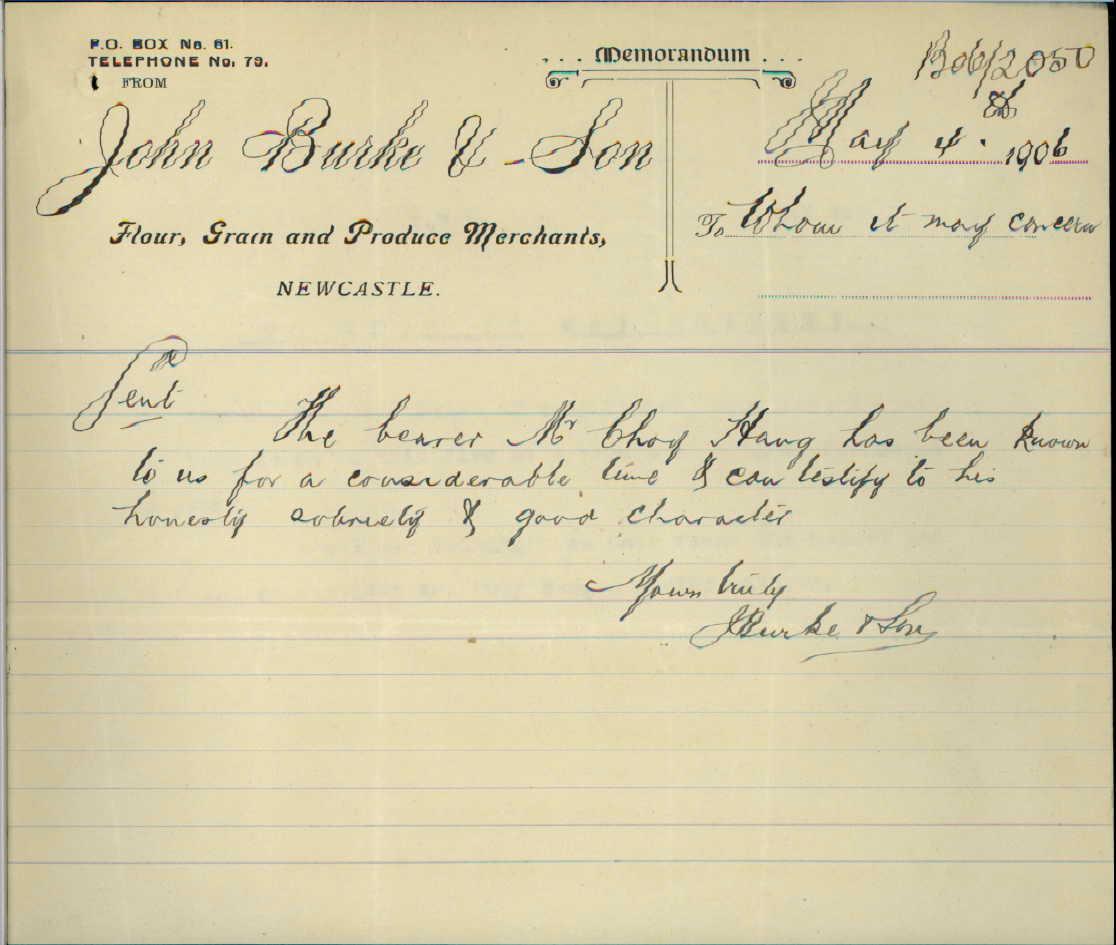 P.O. BOX No. 61.
TELEPHONE No. 79.
FROM
John Burke & Son
Flour, Grain and Produce Merchants,
NEWCASTLE.
Memorandum
B06/2050
May 4. 1906
To Whom it may concern
Gent
The bearer Mr Choy Hang has been known
to us for a considerable time & can testify to his
honesty sobriety & good character
Yours truly
J Burke & Son